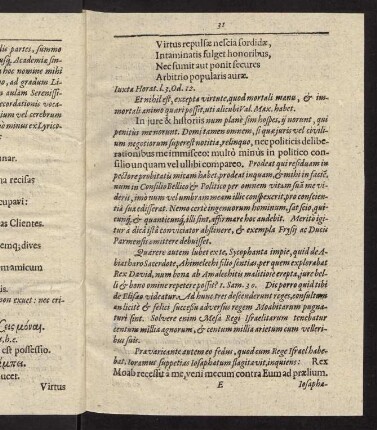 liu partes, summo
usq́; Academiæ
hoc nomine mihi
ad gradum
aulam Serenissi-
ecordationis voca-
vel cerebrum
minus exLyrico-
nnar.
na recisas
cupavi:
as Clientes.
emq; dives
amicum
is.
non exuet: nec eri-
s.h.e.
est possessio.
ucet.
Virtus
31
Virtus repulsæ nescia sordidæ,
Intaminatis fulget honoribus,
Nec sumit aut ponit secures
Arbitrio popularis auræ.
Iuxta Horat. l.3. Od. 12.
Et nihil est, excepta virtute, quod mortali manu, & im-
mortali animo quæri possit, uti alicubi Val. Max. habet.
In jure & historiis num planè sim hospes, ij norunt, qui
penitius me norunt. Domi tamen omnem, si quæ juris vel civili-
um negotiorum superest notitia, relinquo, nec politicis delibe-
rationibus me immisceo: multò minus in politico con-
silio unquam vel alibi compareo. Prodeat qui residuam in
pectore probitatis micam habet, prodeat inquam, & mihi in faciẽ,
num in Consilio Bellico & Politico per omnem vitam suã me vi-
derit, imò num vel umbram meam illic conspexerit, pro conscien-
tia sua edisserat. Nemo certè ingenuorum hominum, sat scio, qui-
cunq́; & quanticunq́; illi sint, affirmare hoc audebit. Meritò igi-
tur à dicã istâ conviciator abstinere, & exempla Frysij ac Ducis
Parmensis omittere debuisset.
Quærere autem lubet ex te, Sycophanta impie, quid de A-
biatharo Sacerdote, Ahimelechi filio statuas, per quem explorabat
Rex David, num bona ab Amalechitis malitiosè erepta, jure bel-
li & bono omine repetere posset? 1. Sam. 30. Dic porrò quid tibi
de Elisæo videatur. Ad hunc tres descenderunt reges, consultum
an licitè & felici successu adversus regem Moabitarum pugna-
turi sint. Solvere enim Mesa Regi Israelitarum tenebatur
centum millia agnorum, & centum millia arietum cum velleri-
bus suis.
Prævaricante autem eo fœdus, quod cum Rege Israel habe-
bat, Joramus suppetias Iosaphatum flagitavit, inquiens: Rex
Moab recessit à me, veni mecum contra Eum ad prælium.
E
Iosapha-